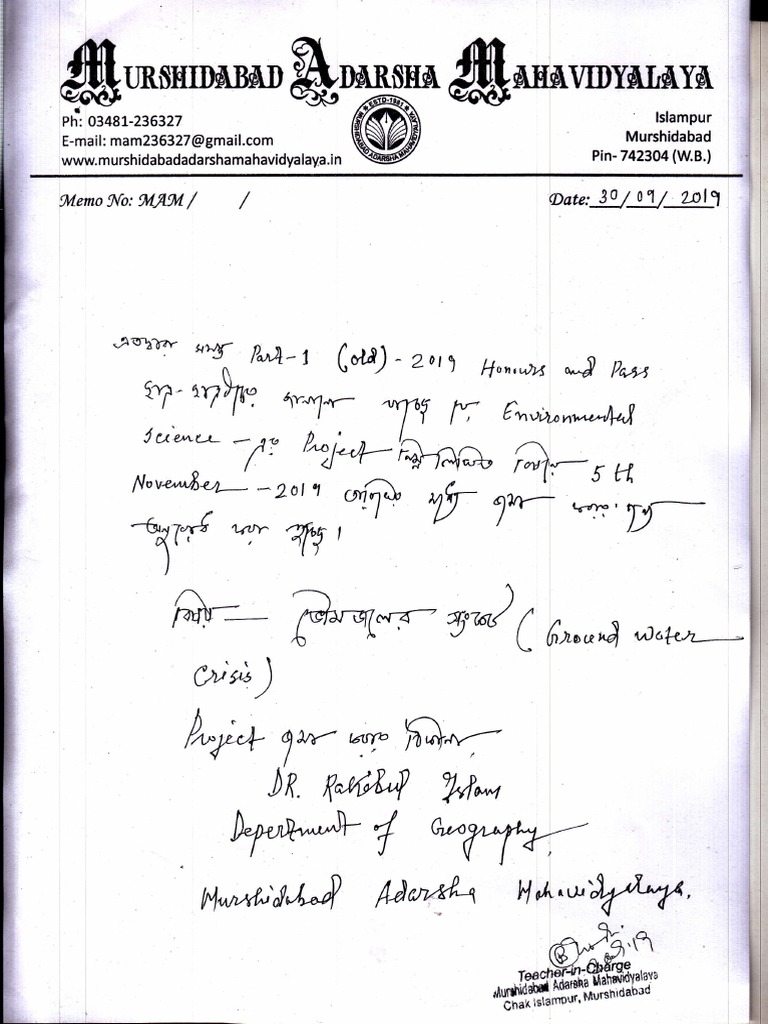 MURSHIDABAD ADARSHA MAHAVIDYALAYA
Ph: 03481-236327
E-mail: mam236327@gmail.com
www.murshidabadadarshamahavidyalaya.in
ESTD-1981
MURSHIDABAD ADARSHA MAHAVIDYALAYA
Islampur
Murshidabad
Pin- 742304 (W.B.)
Memo No: MAM / /
Date: 30/09/2019
এতদ্বারা সমস্ত Part-1 (old) - 2019 Honours and Pass
ছাত্র-ছাত্রীদের জানানো যাচ্ছে যে, Environmental
Science - এর Project নিম্নলিখিত বিষয়ে 5th
November - 2019 তারিখের মধ্যে জমা করার জন্য
অনুরোধ করা হচ্ছে।
বিষয় — ভৌমজলের সংকট (Ground water
Crisis)
Project জমা করার ঠিকানা
DR. Rakibul Islam
Depertment of Geography
Murshidabad Adarsha Mahavidyalaya.
Teacher-in-Charge
Murshidabad Adarsha Mahavidyalaya
Chak Islampur, Murshidabad